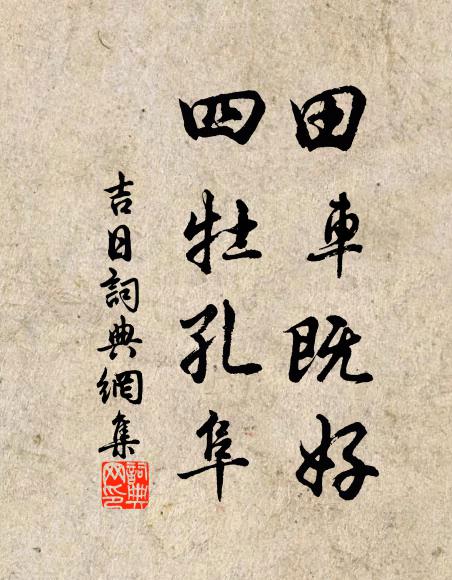 田車既好
四牡孔阜
吉日詞典網集
詞典
网印